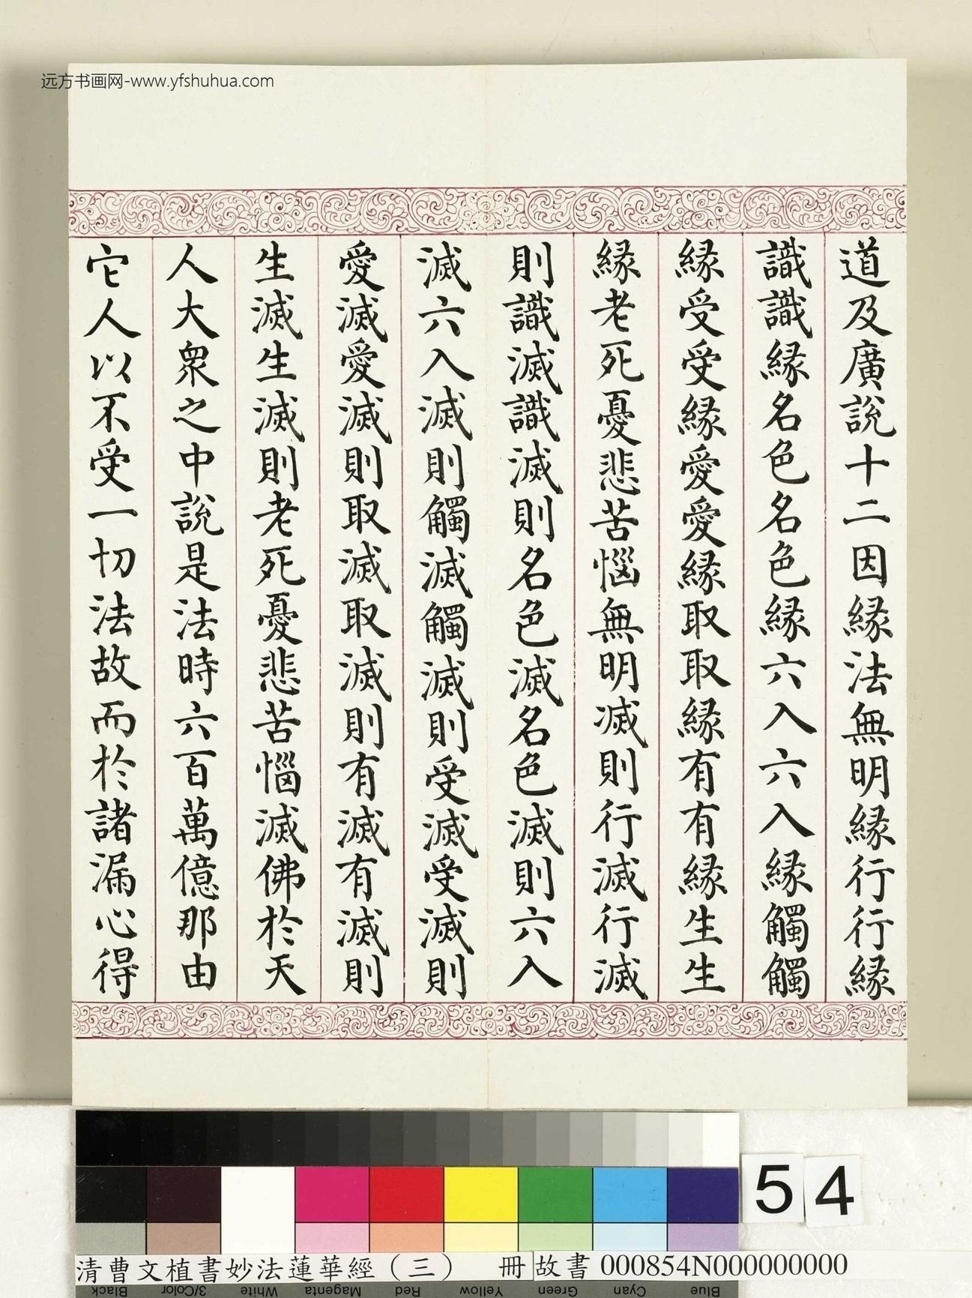 远方书画网-www.yfshuhua.com
道及廣說十二因緣法無明緣行行緣
識識緣名色名色緣六入六入緣觸觸
緣受受緣愛愛緣取取緣有有緣生生
緣老死憂悲苦惱無明滅則行滅行滅
則識滅識滅則名色滅名色滅則六入
滅六入滅則觸滅觸滅則受滅受滅則
愛滅愛滅則取滅取滅則有滅有滅則
生滅生滅則老死憂悲苦惱滅佛於天
人大眾之中說是法時六百萬億那由
它人以不受一切法故而於諸漏心得
54
清曹文植書妙法蓮華經（三） 冊 故書 000854N000000000
Black 3/Color White Magenta Red Yellow Green Cyan Blue